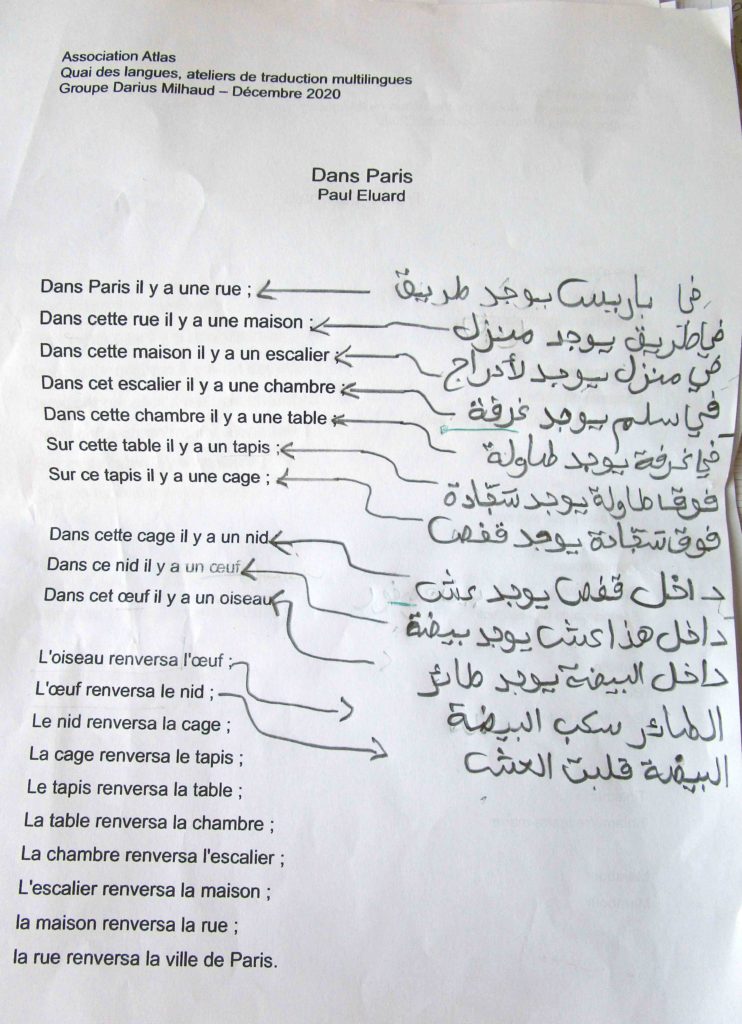 Association Atlas
Quai des langues, ateliers de traduction multilingues
Groupe Darius Milhaud – Décembre 2020
Dans Paris
Paul Eluard
Dans Paris il y a une rue ; في باريس يوجد طريق
Dans cette rue il y a une maison ; في طريق يوجد منزل
Dans cette maison il y a un escalier في منزل يوجد لأدراج
Dans cet escalier il y a une chambre ; في سلم يوجد غرفة
Dans cette chambre il y a une table في غرفة يوجد طاولة
Sur cette table il y a un tapis ; فوق طاولة يوجد سجّادة
Sur ce tapis il y a une cage ; فوق سجّادة يوجد قفص
Dans cette cage il y a un nid داخل قفص يوجد عش
Dans ce nid il y a un œuf داخل هذا عش يوجد بيضة
Dans cet œuf il y a un oiseau داخل البيضة يوجد طائر
L'oiseau renversa l'œuf ; الطائر سكب البيضة
L'œuf renversa le nid ; البيضة قلبت العش
Le nid renversa la cage ;
La cage renversa le tapis ;
Le tapis renversa la table ;
La table renversa la chambre ;
La chambre renversa l'escalier ;
L'escalier renversa la maison ;
la maison renversa la rue ;
la rue renversa la ville de Paris.